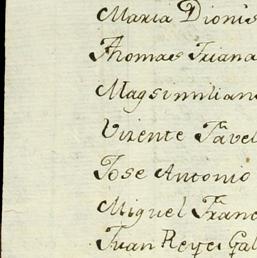 Maria Dionis
Thomas Triana
Magsimiliano
Vizente Favel
Jose Antonio
Miguel Franc
Juan Reyes Gal